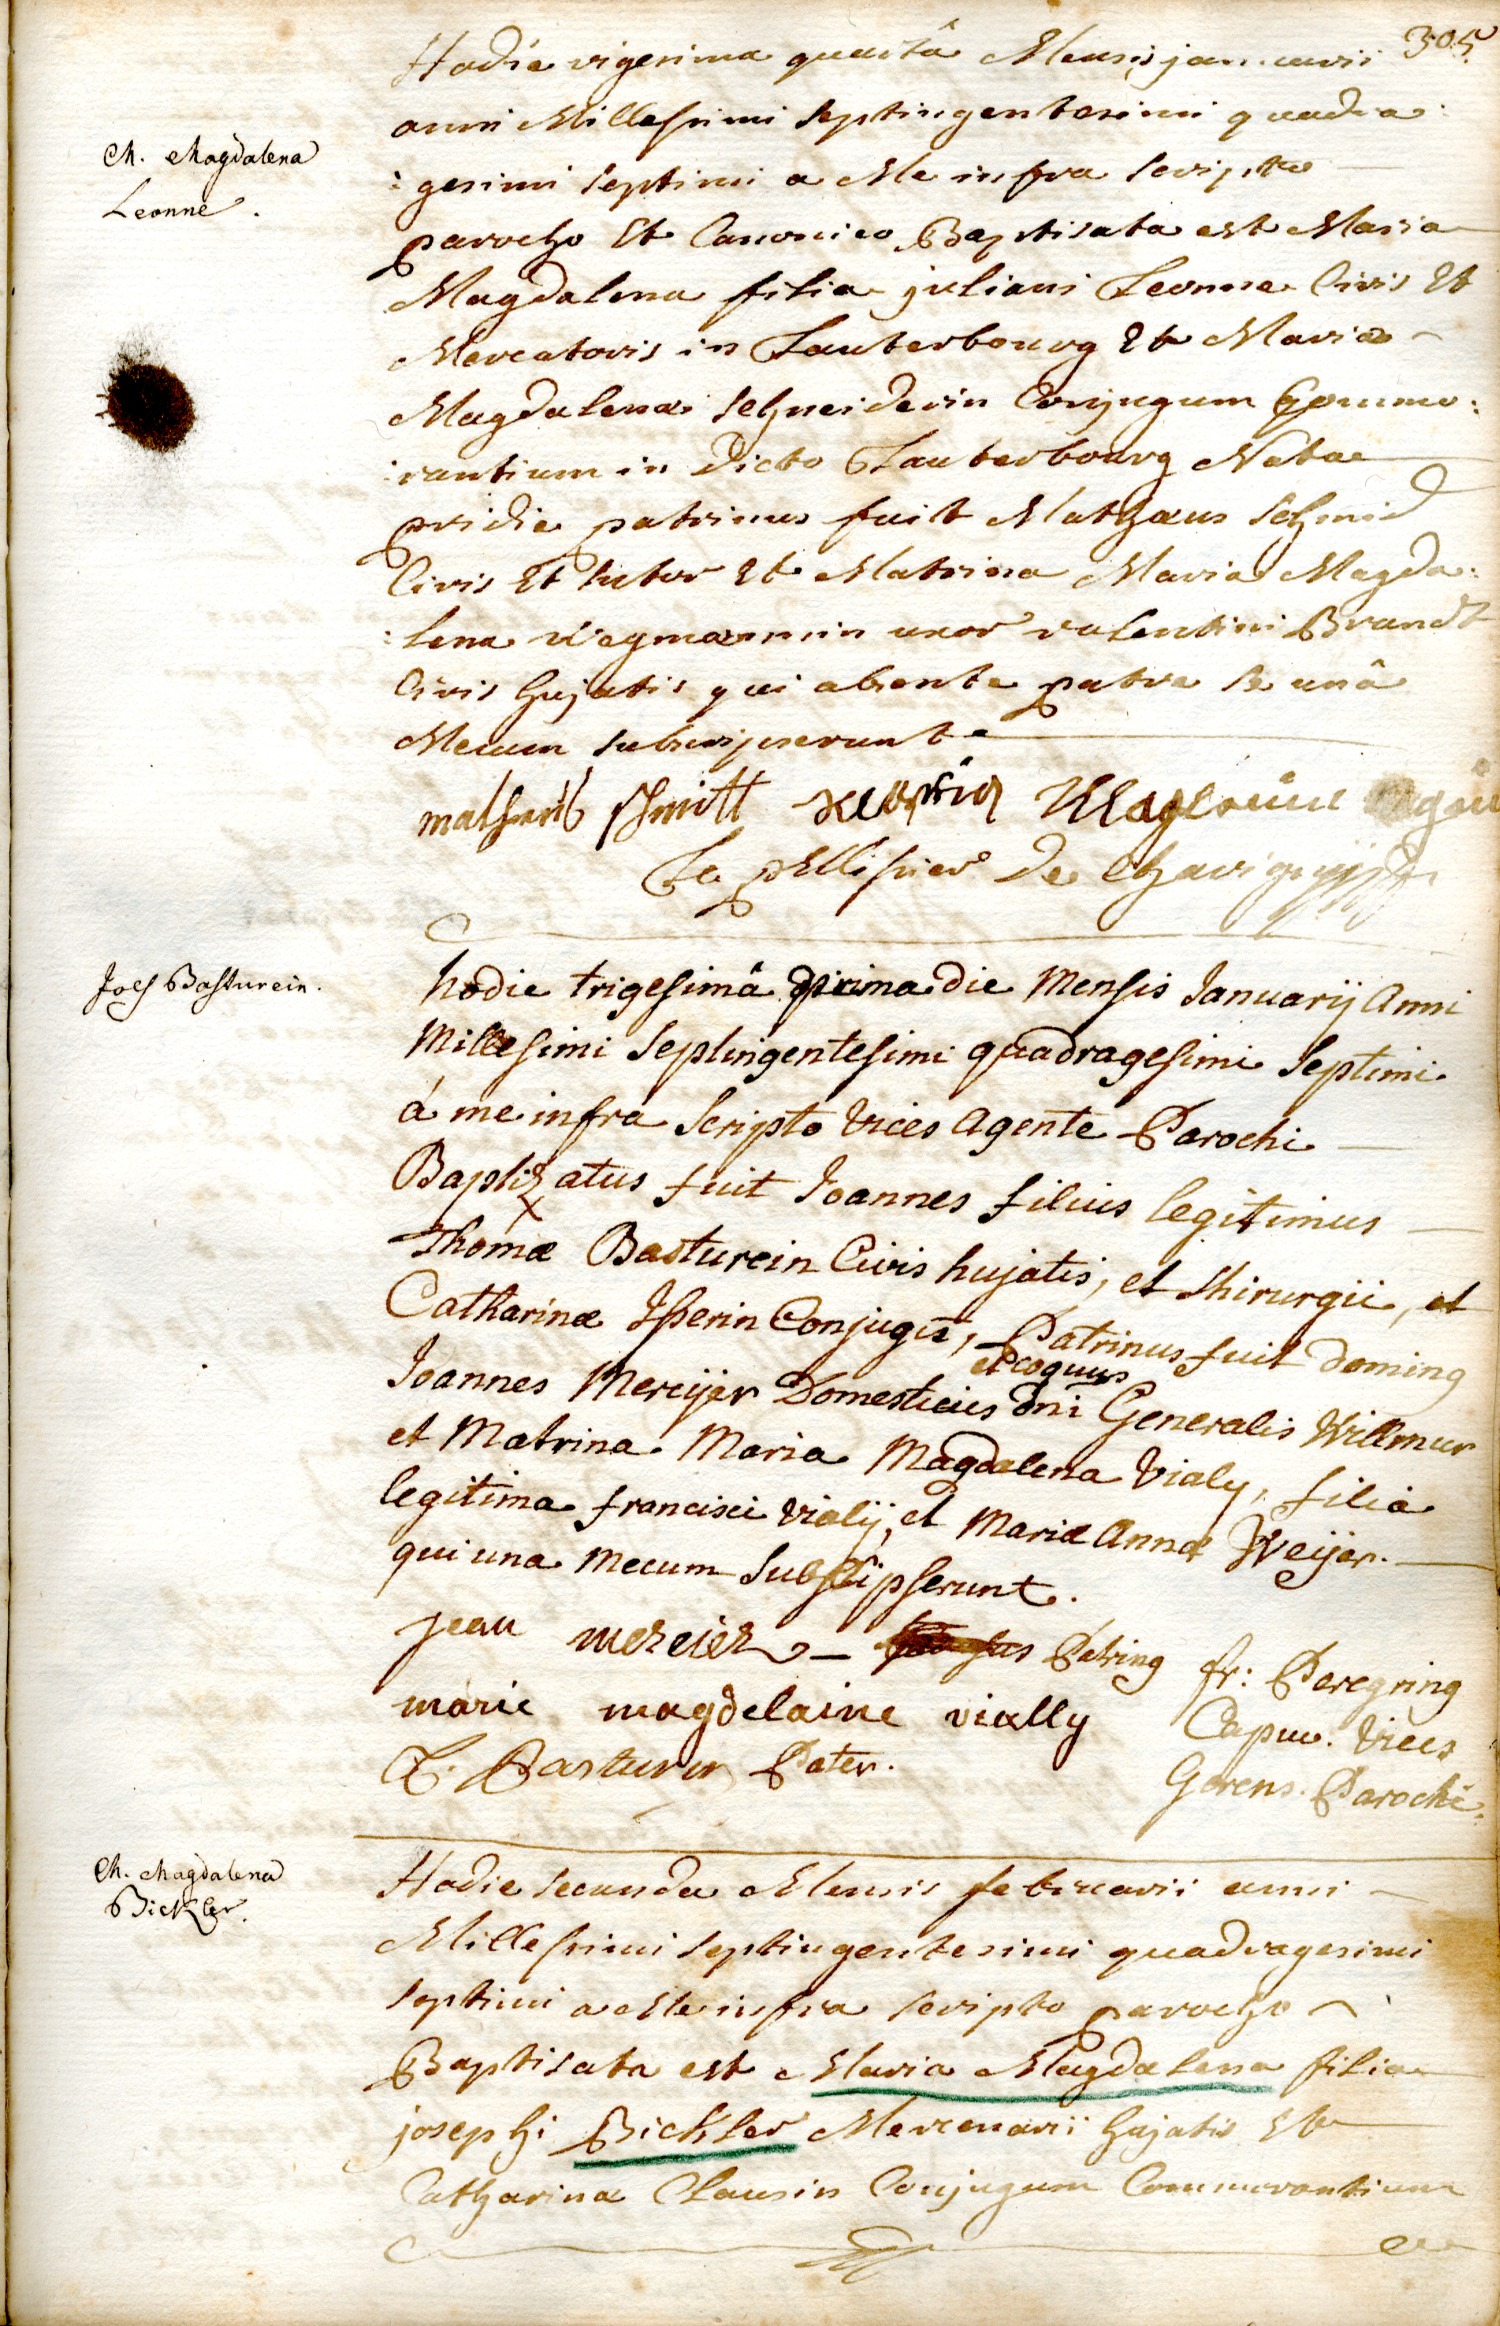 305
Hodie vigesima quartâ Mensis januarii
anni Millesimi Septingentesimi quadra:
M. Magdalena
Leonne.
:gesimi Septimi a Me infra Scripto
parocho Et Canonico Baptisata est Maria
Magdalena filia juliani Leonne Civis Et
Mercatoris in Lauterbourg Et Mariae
Magdalenae Schneiderin Conjugum Commo:
:rantium in dicto Lauterbourg Nata
pridie patrinus fuit Mathaeus Schmid
Civis Et sutor Et Matrina Maria Magda:
:lena Wegmannin uxor valentini Brandt
Civis hujatis qui absente patre se unâ
Mecum subscripserunt
schmitt
Le pellissier de Chavigny
Joes Basturein.
hodie trigesimâ prima die Mensis Januarij Anni
Millesimi Septingentesimi quadragesimi Septimi
á me infra Scripto Vices Agente Parochi
Baptizatus fuit Joannes filius legitimus
Thomæ Basturein Civis hujatis, et Chirurgii, et
Catharinæ Isserin Conjugis, Patrinus fuit doming
et coquus
Joannes Mercijer Domesticus dni Generalis Willmur
et Matrina Maria Magdalena Vialy, filia
legitima francisci Vialij, et Mariæ Annæ Weijer.
qui una mecum Subscripserunt.
jean mercier Patring
marie magdelaine vially
T. Basturin Pater.
fr: Peregring
Capuc. Vices
Gerens Parochi.
M. Magdalena
Bickler.
Hodie secunda Mensis februarii anni
Millesimi septingentesimi quadragesimi
septimi a Me infra scripto parocho
Baptisata est Maria Magdalena filia
josephi Bickler Mercenarii hujatis Et
Catharina Clausin Conjugum Commorantium